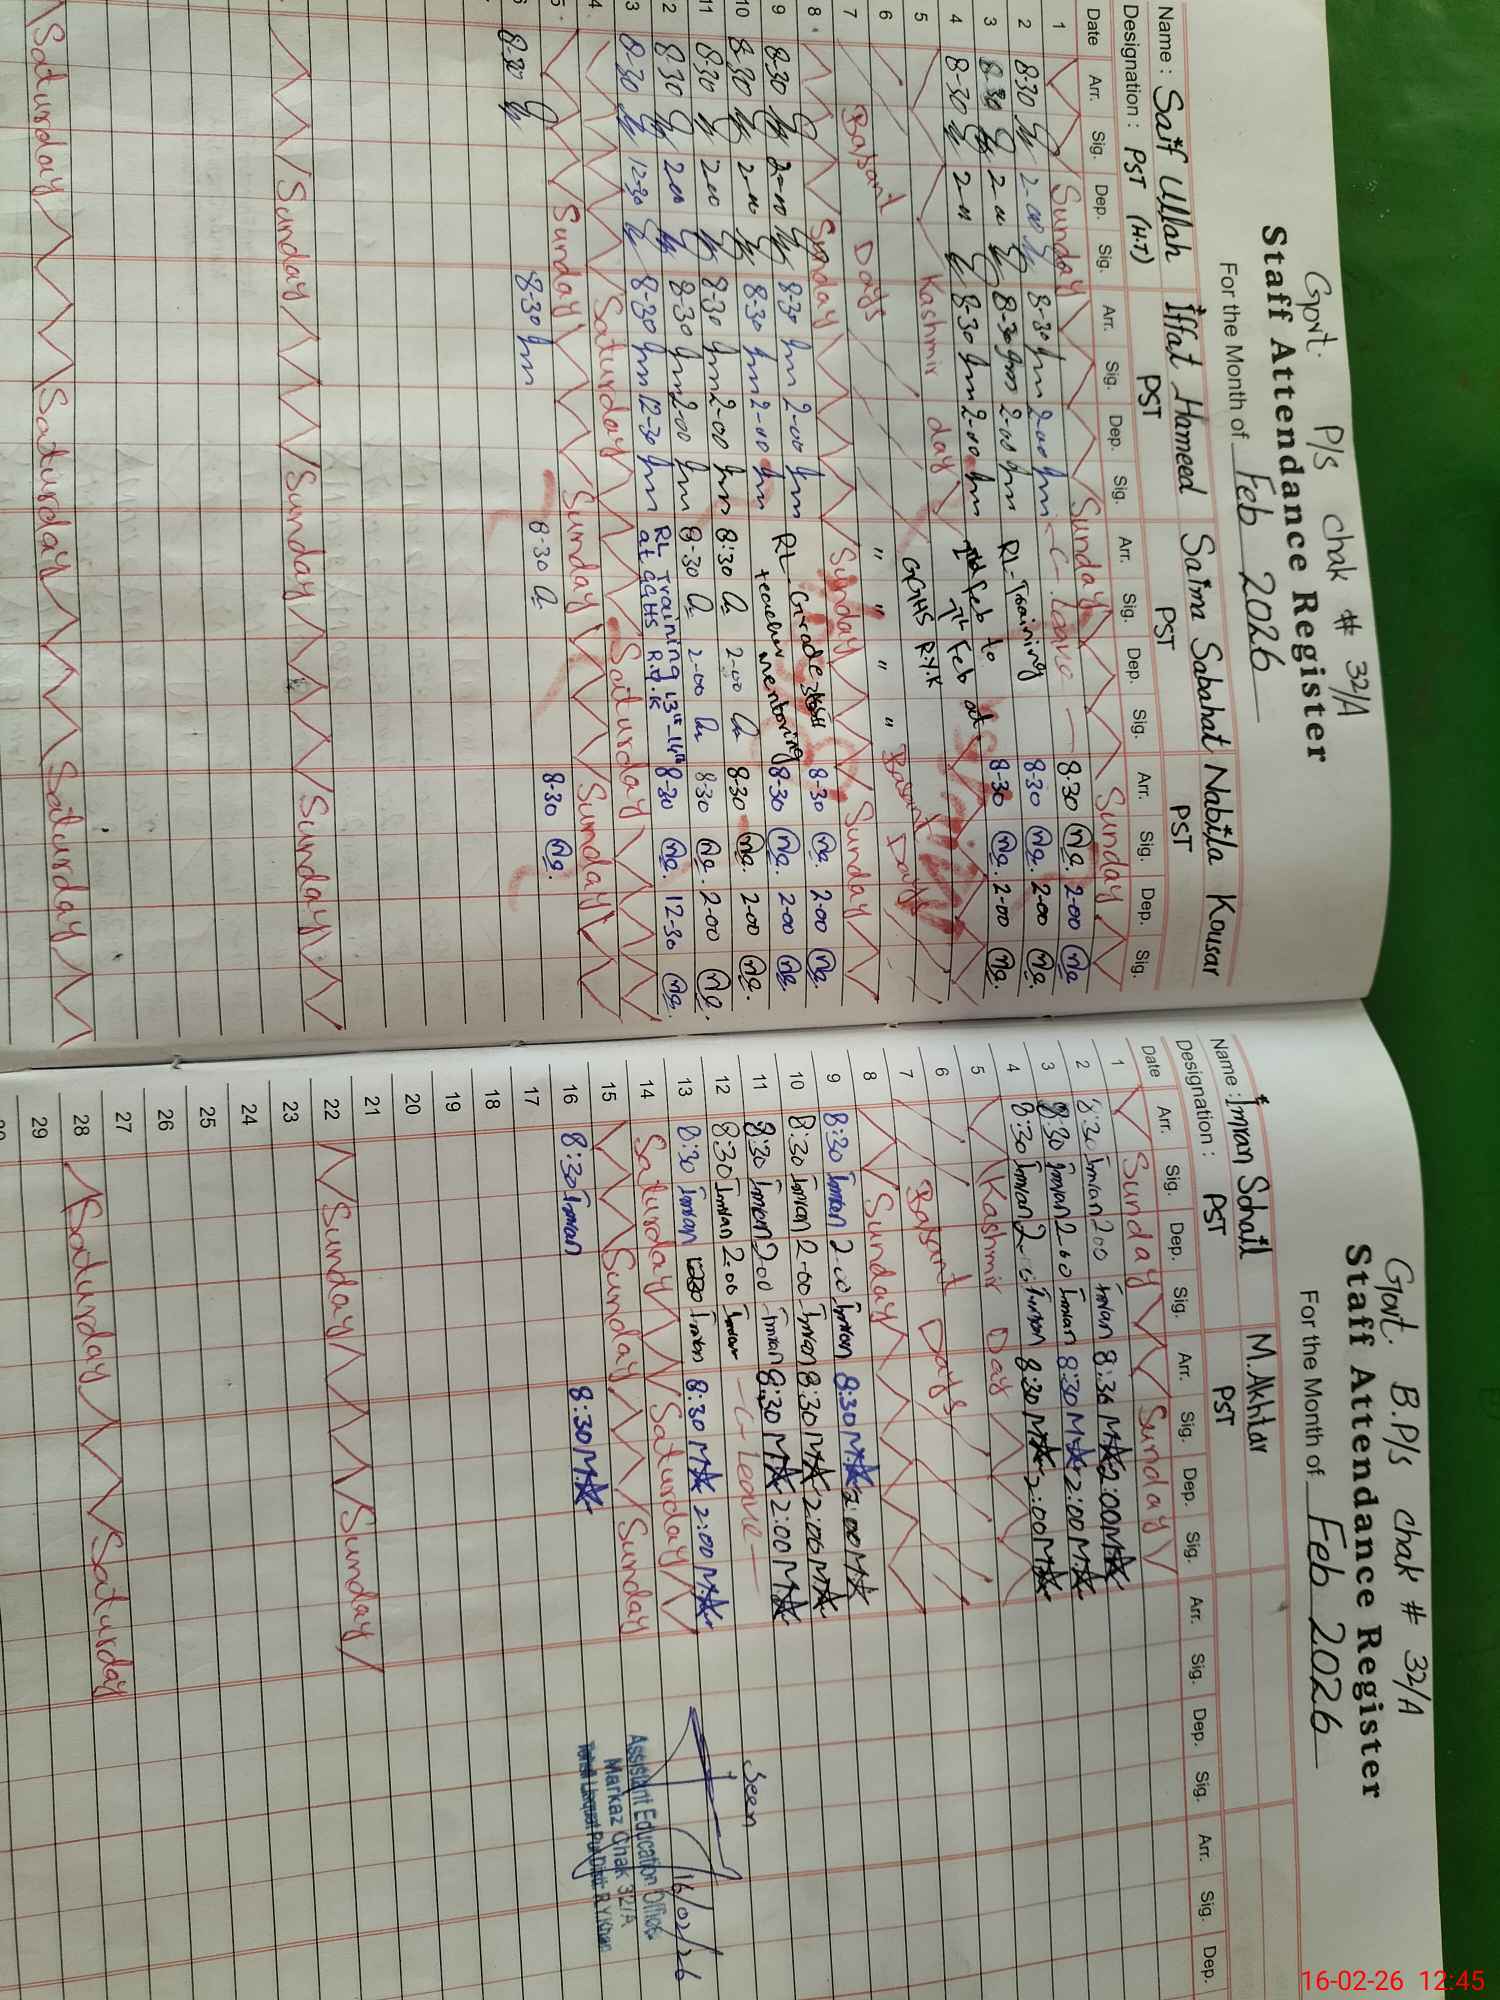 Govt. P/s chak # 32/A
Staff Attendance Register
For the Month of Feb 2026
Name : Saif Ullah Iffat Hameed Saima Sabahat Nabila Kousar
Designation : PST (H.T) PST PST PST
Date Arr. Sig. Dep. Sig. Arr. Sig. Dep. Sig. Arr. Sig. Dep. Sig. Arr. Sig. Dep. Sig.
1 Sunday Sunday Sunday
2 8-30 2-00 8-30 2-00 C. leave 8-30 na. 2-00 na
3 8-30 2-00 8-30 2-00 RL-Training 8-30 na. 2-00 na.
4 8-30 2-00 8-30 2-00 Feb to 8-30 na. 2-00 na.
7th Feb at
5 Kashmir day GGHS R.Y.K
6 Basant Days " " " " Basant Days
7
8 Sunday Sunday Sunday
9 8-30 2-00 8-30 2-00 RL-Grade 8-30 na. 2-00 na.
10 8-30 2-00 8-30 2-00 teacher mentoring 8-30 na. 2-00 na.
11 8-30 2-00 8-30 2-00 8:30 2-00 8-30 na. 2-00 na.
12 8-30 2-00 8-30 2-00 8-30 2-00 8-30 na. 2-00 na.
13 8-30 12-30 8-30 12-30 RL Training 13th-14th 8-30 na. 12-30 na.
at GGHS R.Y.K
14 Saturday Saturday
15 Sunday Sunday Sunday
16 8-30 8-30 8-30 8-30 na.
Sunday Sunday Sunday
Saturday Saturday Saturday
Govt. B.P/s chak # 32/A
Staff Attendance Register
For the Month of Feb 2026
Name : Imran Sohail M.Akhtar
Designation : PST PST
Date Arr. Sig. Dep. Sig. Arr. Sig. Dep. Sig. Arr. Sig. Dep. Sig. Arr. Sig. Dep.
1 Sunday Sunday
2 8:30 Imran 2.00 Imran 8:30 2:00
3 8:30 Imran 2.00 Imran 8:30 2:00
4 8:30 Imran 2-0 Imran 8:30 2:00
5 Kashmir Day
6 Basant Days
7
8 Sunday
9 8:30 Imran 2.00 Imran 8:30 2:00
10 8:30 Imran 2-00 Imran 8:30 2:00
11 8:30 Imran 2.00 Imran 8:30 2:00
12 8:30 Imran 2.00 Imran leave
13 8:30 Imran Imran 8:30 2:00
14 Saturday Saturday
15 Sunday Sunday
16 8:30 Imran 8:30
17
18
19
20
21
22 Sunday Sunday
23
24
25
26
27
28 Saturday Saturday
29
Seen
16/02/26
Assistant Education Officer
Markaz Chak 32/A
16-02-26 12:45